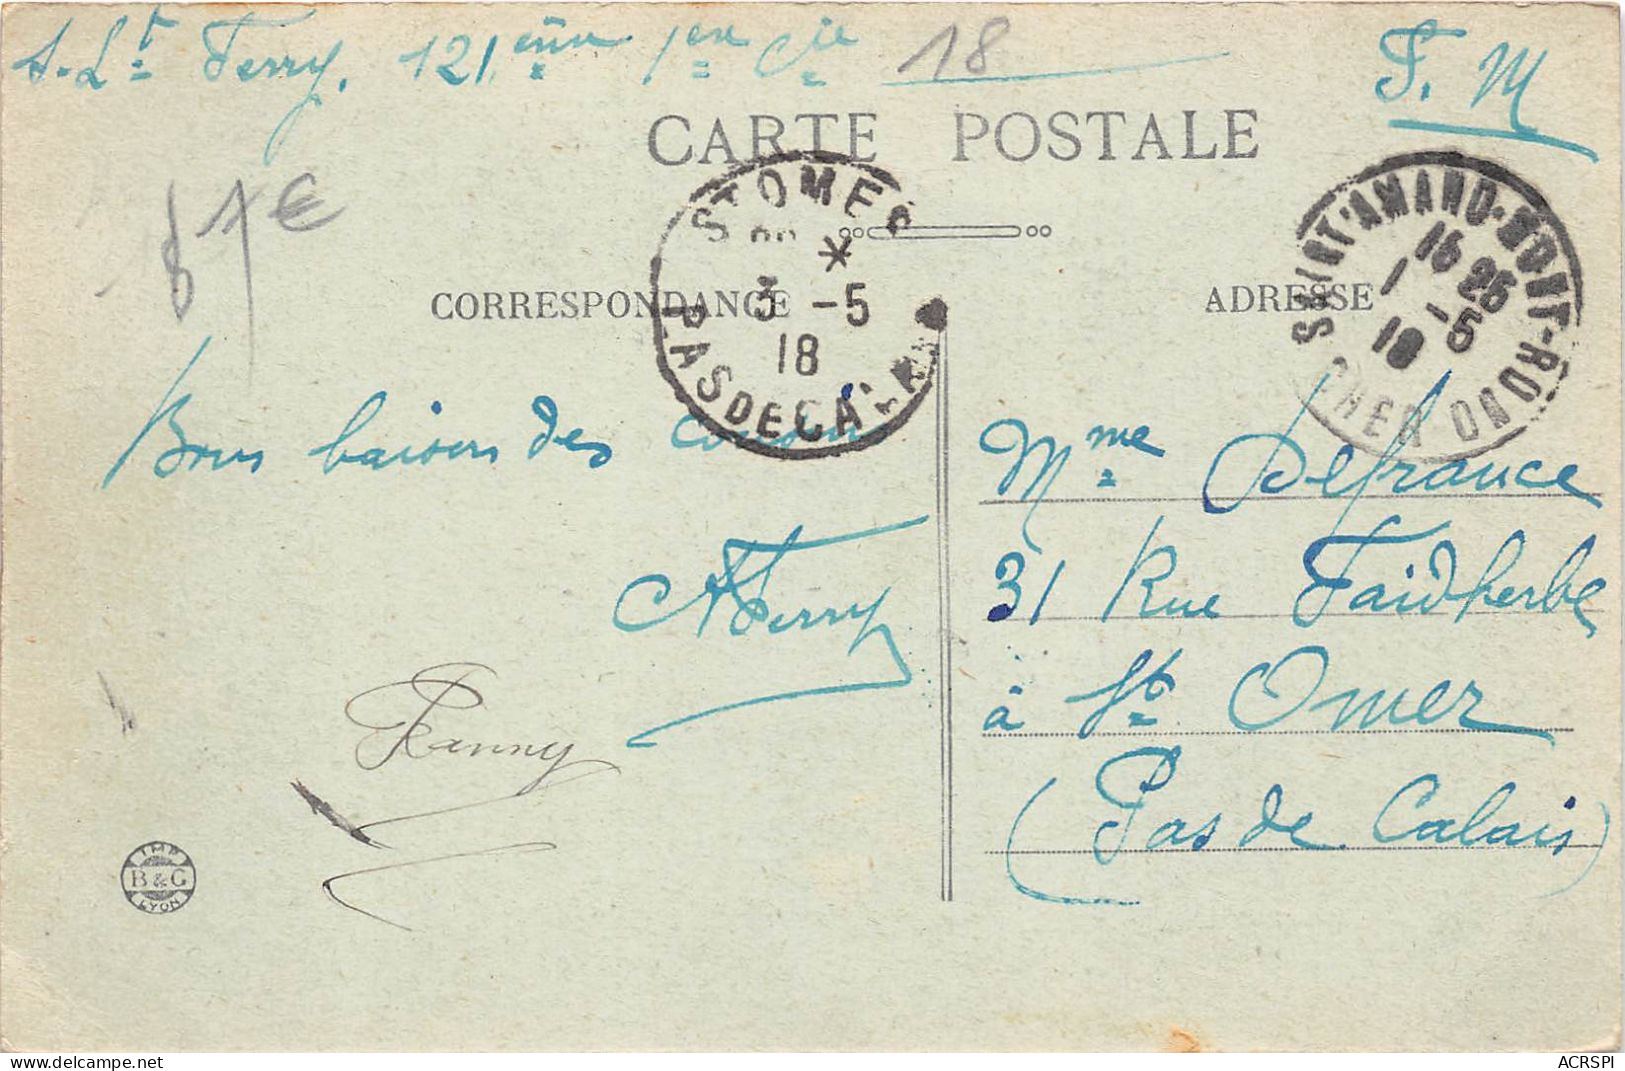 S. Lt. Ferry. 121ème 1ère Cie 18
F. M
CARTE POSTALE
1€
ST OMER
*
3 -5
18
PAS DE CALAIS
SAINT-AMAND-MONT-ROND
16 25
1 -5
18
CHER
CORRESPONDANCE
ADRESSE
Bons baisers des cousins
AFerry
Fanny
Mme Defrance
31 Rue Faidherbe
à St Omer
(Pas de Calais)
IMP
B & G
LYON
ACRSPI